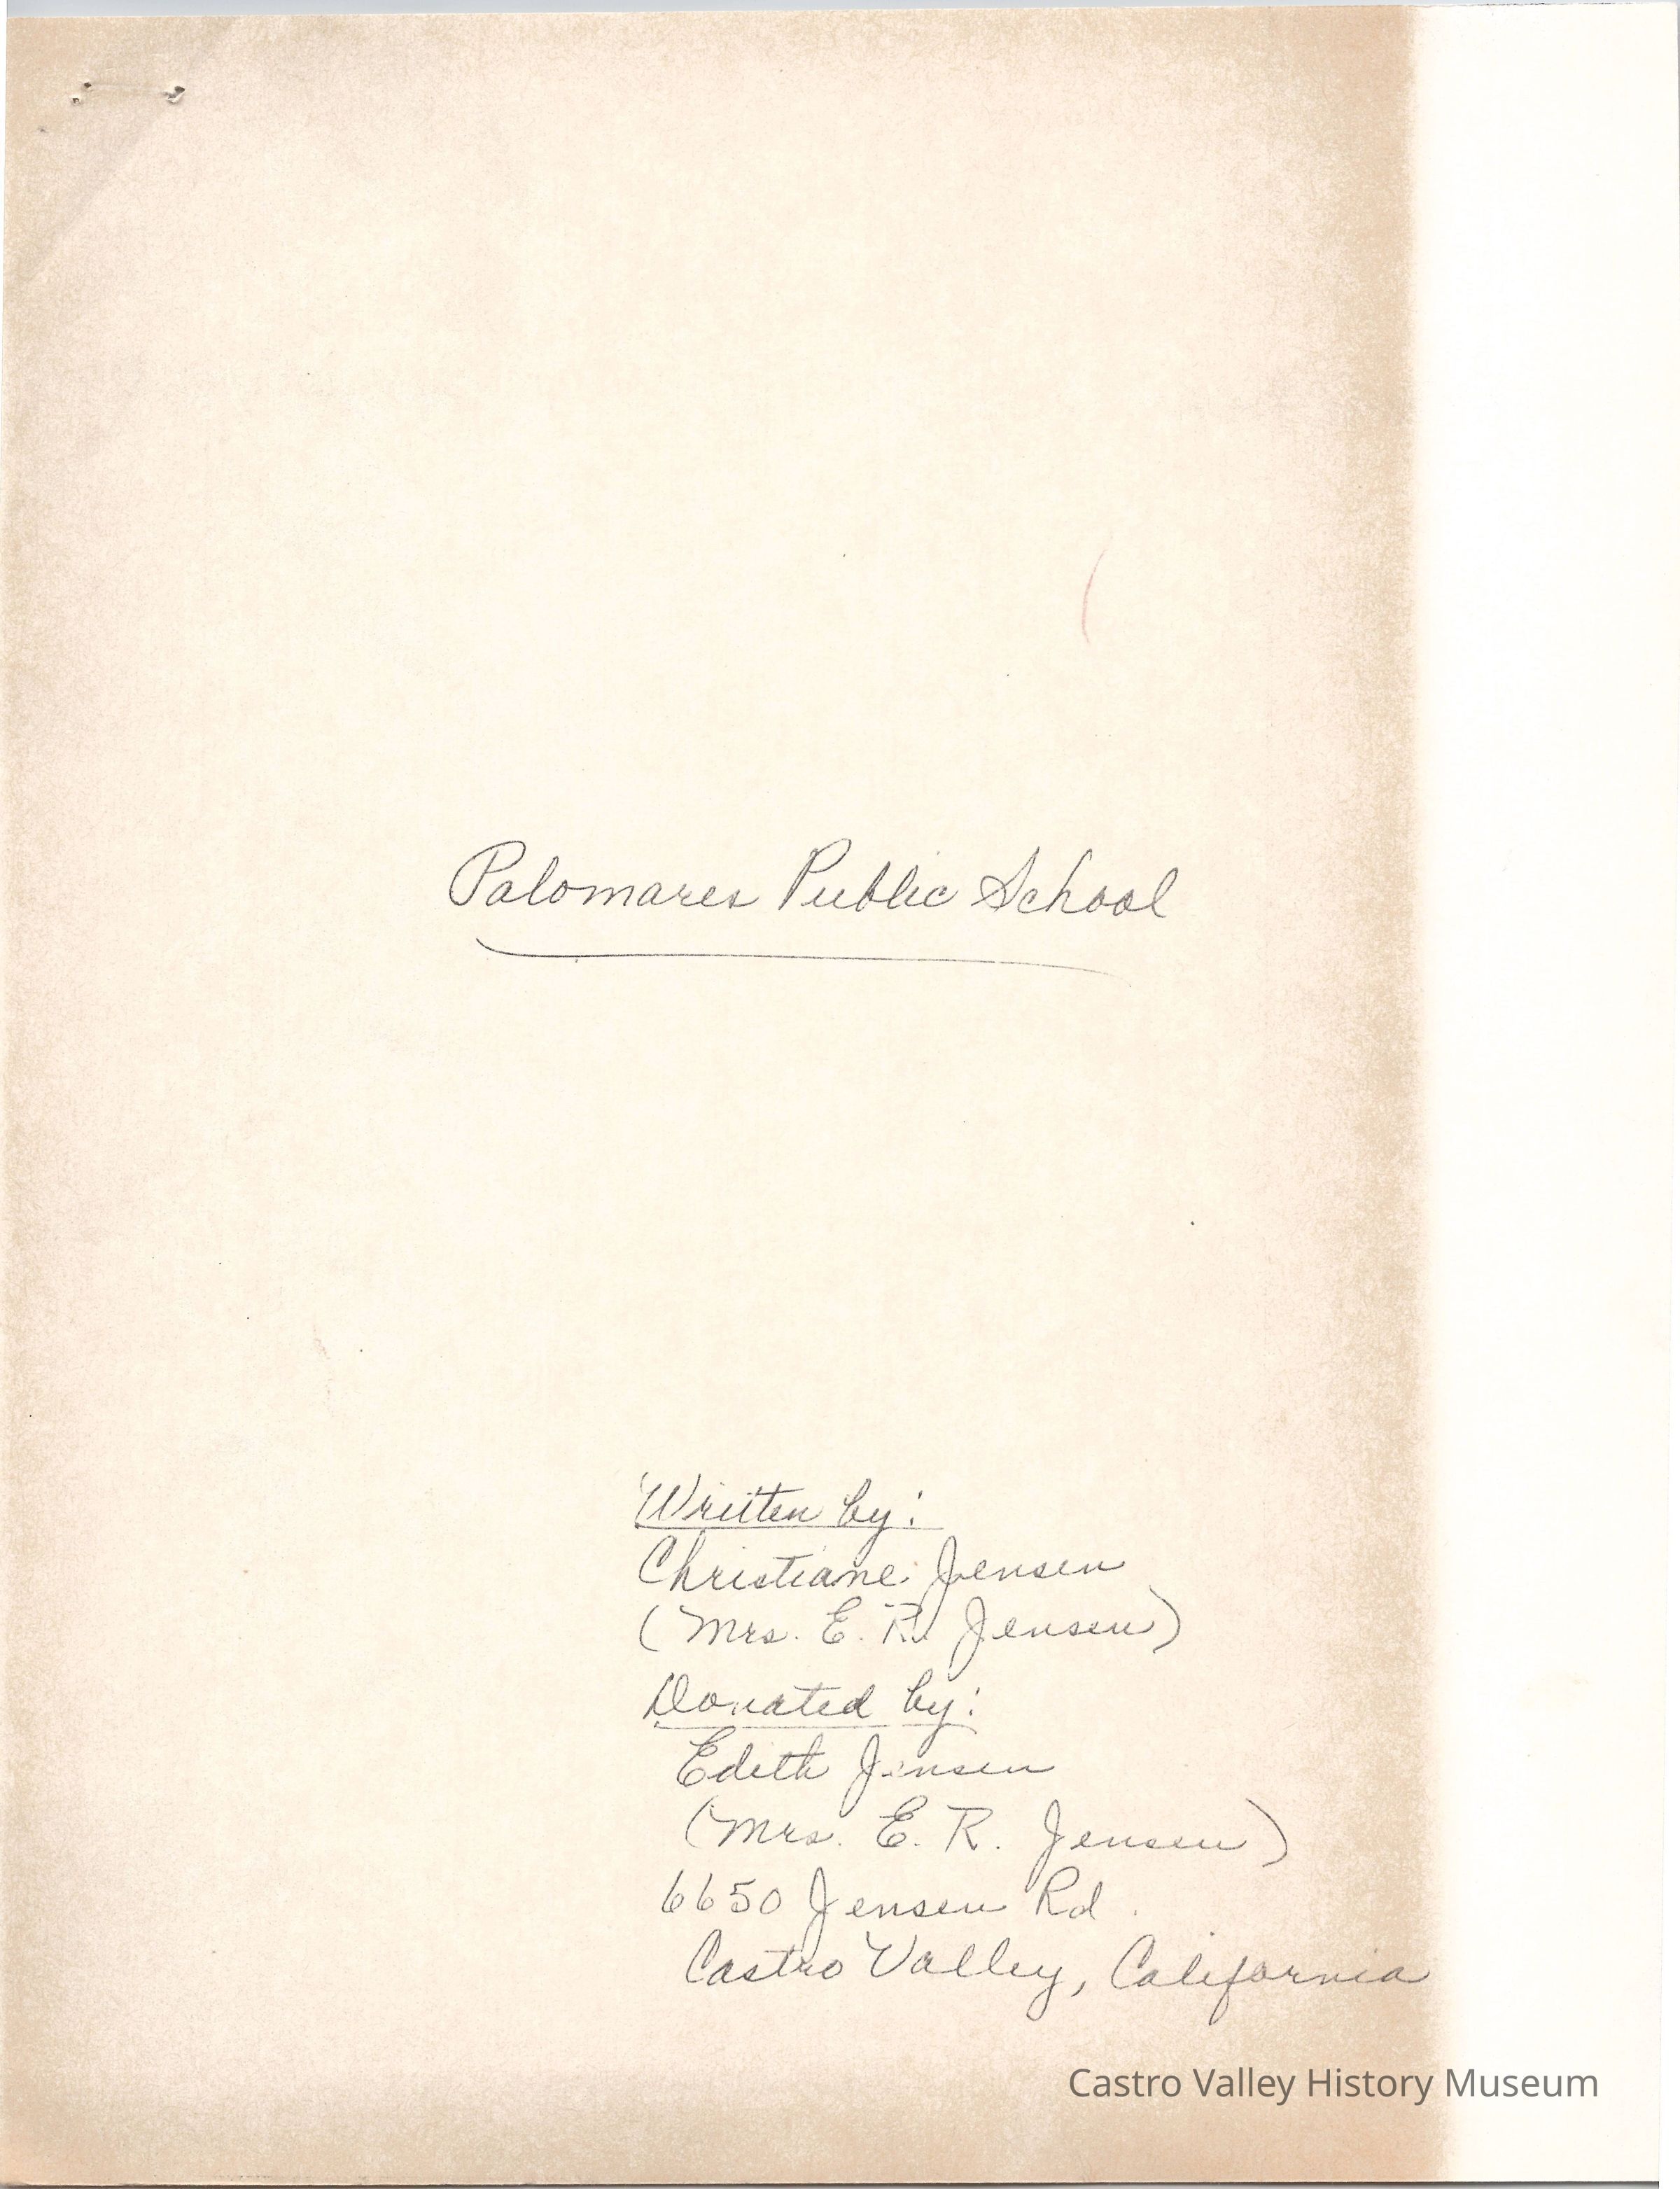 Palomares Public School
Written by:
Christiane Jensen
(Mrs. E. R. Jensen)
Donated by:
Edith Jensen
(Mrs. E. R. Jensen)
6650 Jensen Rd.
Castro Valley, California
Castro Valley History Museum